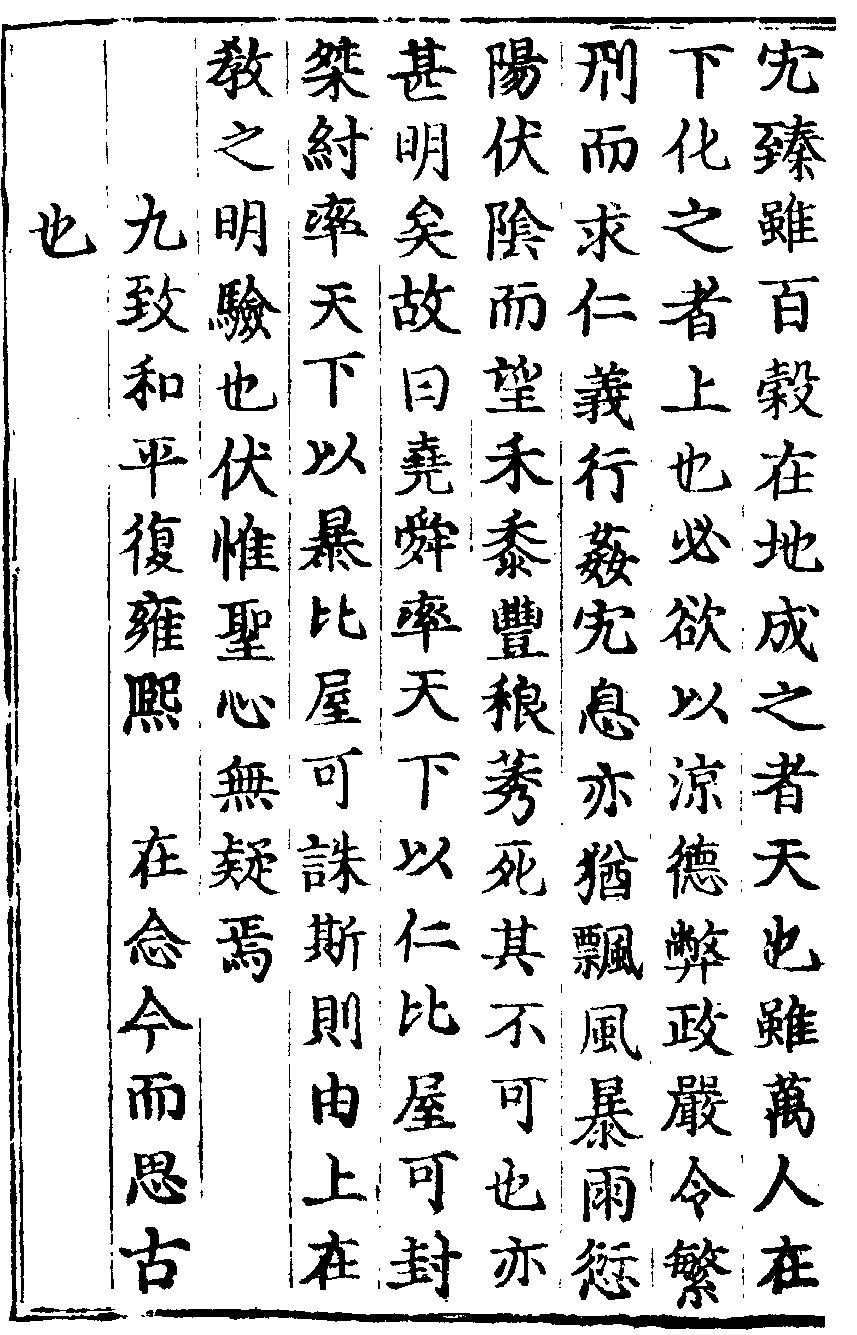 宄臻雖百穀在地成之者天也雖萬人在
下化之者上也必欲以涼德弊政嚴令繁
刑而求仁義行姦宄息亦猶飄風暴雨愆
陽伏陰而望禾黍豐稂莠死其不可也亦
甚明矣故曰堯舜率天下以仁比屋可封
桀紂率天下以暴比屋可誅斯則由上在
教之明驗也伏惟聖心無疑焉
九致和平復雍熙　在念今而思古
也